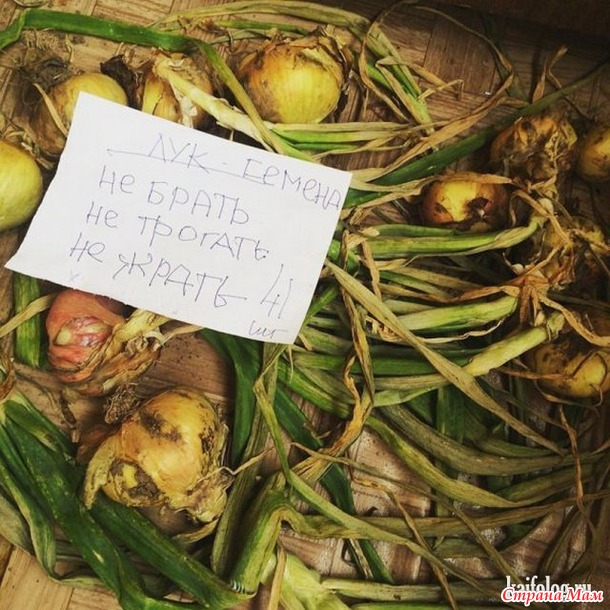 ЛУК - СЕМЕНА
не БРАТЬ
не ТРОГАТЬ
не ЖРАТЬ 41
шт
kaifolog.ru
Страна Мам